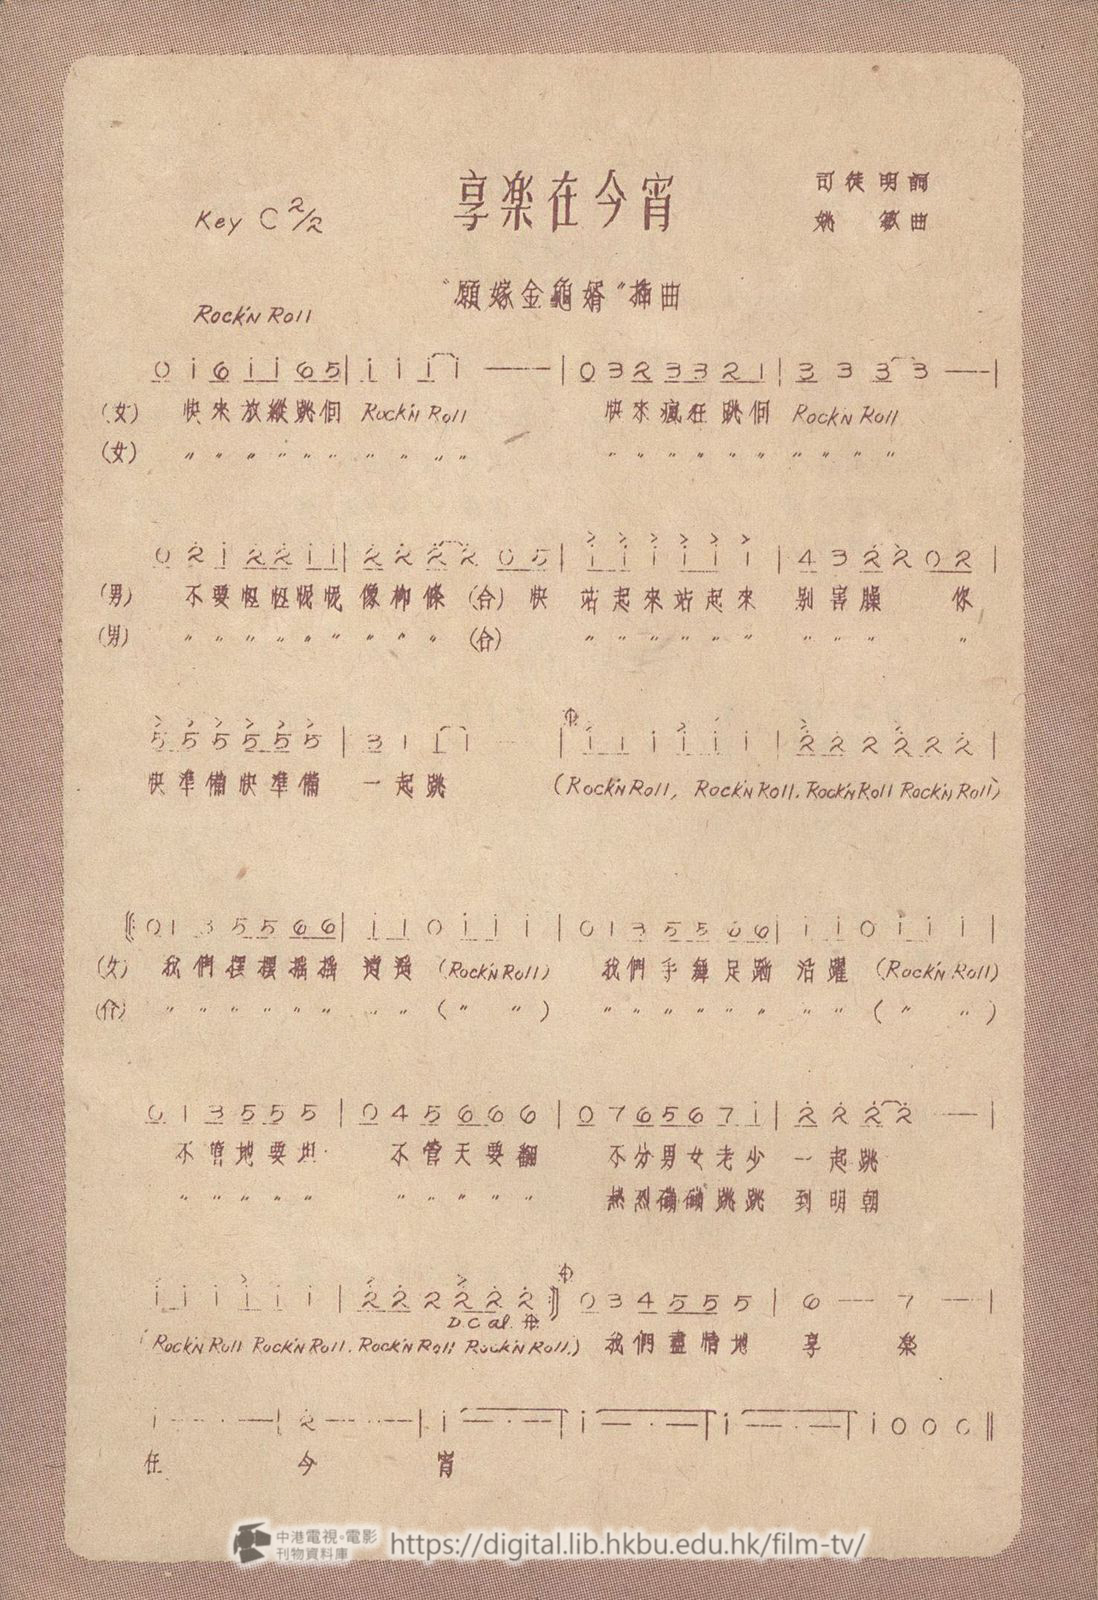 享楽在今宵
司徒明詞
Key C 2/2
姚 敏曲
"願嫁金龜婿"插曲
Rock'N Roll
0 i 6 i i 6 5 | i i i i — — | 0 3 2 3 3 2 1 | 3 3 3 3 — — |
(女) 快來放縱跳個 Rock'N Roll 快來瘋狂跳個 Rock'N Roll
(女) 〃 〃 〃 〃 〃 〃 〃 〃 〃 〃 〃 〃 〃 〃 〃 〃 〃 〃 〃 〃
0 2 i 2 2 i i | 2 2 2 2 0 5 | i i i i i i | 4 3 2 2 0 2 |
(男) 不要怪怪妮妮像柳條 (合) 快 站起來站起來 别害臊 你
(男) 〃 〃 〃 〃 〃 〃 〃 〃 〃 (合) 〃 〃 〃 〃 〃 〃 〃 〃 〃 〃
5 5 5 5 5 5 | 3 1 1 1 — | i i i i i i | 2 2 2 2 2 2 |
快準備快準備 一起跳 (Rock'N Roll, Rock'N Roll. Rock'N Roll Rock'N Roll)
0 1 3 5 5 6 6 | i i 0 i i i | 0 1 3 5 5 6 6 | i i 0 i i i |
(女) 我們摆摆搖搖 逍遥 (Rock'N Roll) 我們手舞足蹈 活躍 (Rock'N Roll)
(合) 〃 〃 〃 〃 〃 〃 〃 〃 (〃 〃) 〃 〃 〃 〃 〃 〃 〃 〃 (〃 〃)
0 1 3 5 5 5 | 0 4 5 6 6 6 | 0 7 6 5 6 7 i | 2 2 2 2 — |
不管地要坍 不管天要翻 不分男女老少 一起跳
〃 〃 〃 〃 〃 〃 〃 〃 〃 〃 熱烈蹦蹦跳跳 到明朝
i i i i i i | 2 2 2 2 2 2 | 0 3 4 5 5 5 | 6 — 7 — |
D C al
(Rock'N Roll Rock'N Roll. Rock'N Roll Rock'N Roll.) 我們盡情地 享 楽
i — · — | 2 — · — | i — · — | i — · — | i — · — | i 0 0 0 ‖
在 今 宵
中港電視·電影
刊物資料庫
https://digital.lib.hkbu.edu.hk/film-tv/